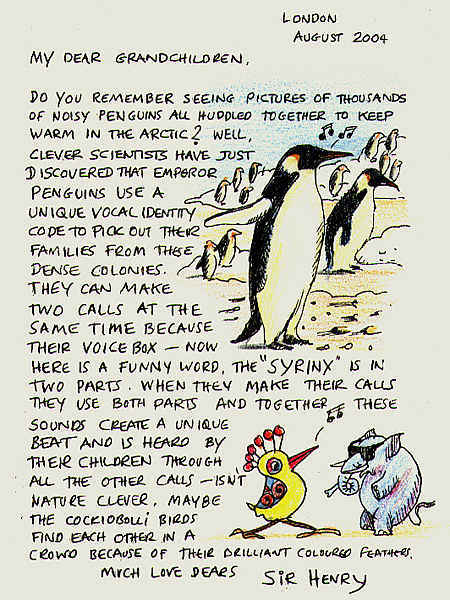 LONDON
AUGUST 2004
MY DEAR GRANDCHILDREN,
DO YOU REMEMBER SEEING PICTURES OF THOUSANDS
OF NOISY PENGUINS ALL HUDDLED TOGETHER TO KEEP
WARM IN THE ARCTIC? WELL,
CLEVER SCIENTISTS HAVE JUST
DISCOVERED THAT EMPEROR
PENGUINS USE A
UNIQUE VOCAL IDENTITY
CODE TO PICK OUT THEIR
FAMILIES FROM THESE
DENSE COLONIES.
THEY CAN MAKE
TWO CALLS AT THE
SAME TIME BECAUSE
THEIR VOICE BOX – NOW
HERE IS A FUNNY WORD, THE "SYRINX" IS IN
TWO PARTS. WHEN THEY MAKE THEIR CALLS
THEY USE BOTH PARTS AND TOGETHER THESE
SOUNDS CREATE A UNIQUE
BEAT AND IS HEARD BY
THEIR CHILDREN THROUGH
ALL THE OTHER CALLS – ISN'T
NATURE CLEVER. MAYBE
THE COCKIOBOLLI BIRDS
FIND EACH OTHER IN A
CROWD BECAUSE OF THEIR BRILLIANT COLOURED FEATHERS.
MUCH LOVE DEARS SIR HENRY